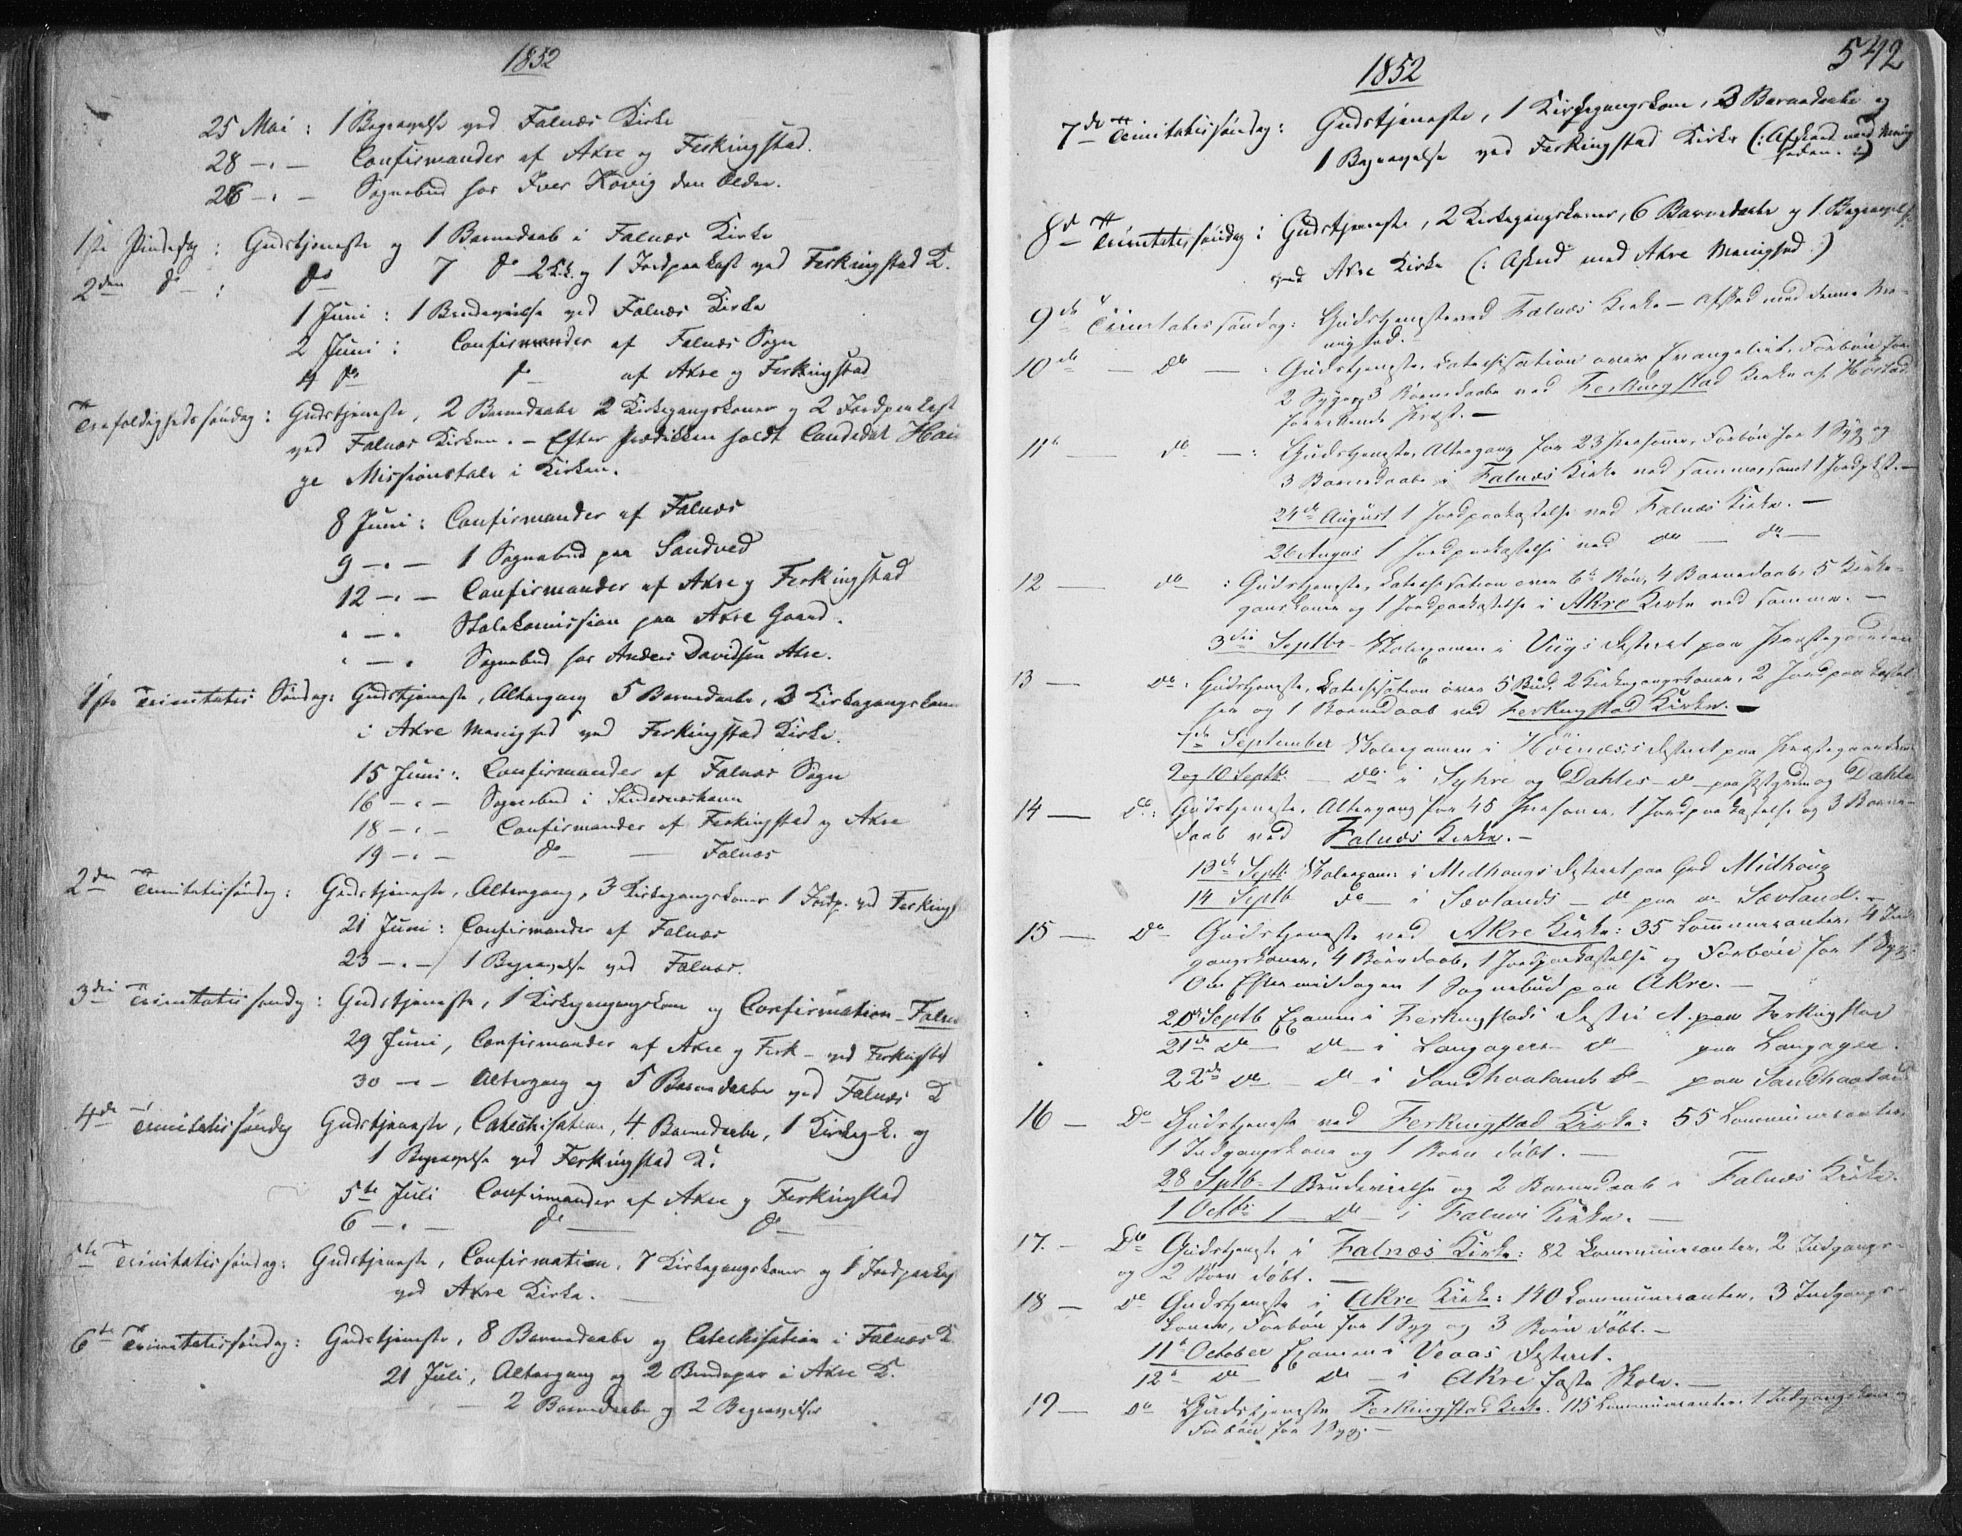 1852
25 Mai : 1 Begravelse ved Falnæs Kirke
28 -"- Confirmander af Akre og Ferkingstad.
26 -"- Sognebud hos Iver Hövig den Ældre.
1ste Pindsedag : Gudstjeneste og 1 Barnedaab i Falnæs Kirke
2den do : do 7 do 2 K.k. og 1 Jordpaakast ved Ferkingstad K.
1 Juni : 1 Brudevielse ved Falnæs Kirke
2 Juni : Confirmander af Falnæs Sogn
4 do do af Akre og Ferkingstad
Trefoldighedssöndag : Gudstjeneste, 2 Barnedaabe 2 Kirkegangskoner og 2 Jordpaakast
ved Falnæs Kirken. - Efter Prædiken holdt Candidat Hau
ge Missionstale i Kirken.
8 Juni : Confirmander af Falnæs
9 -"- 1 Sognebud paa Sandved
12 -"- Confirmander af Akre og Ferkingstad
" - " Skolekomission paa Akre Gaard.
" - " Sognebud hos Anders Davidsen Akre.
1ste Trinitatis Söndag: Gudstjeneste, Altergang 5 Barnedaabe, 3 Kirkegangskoner
i Akre Menighed ved Ferkingstad Kirke.
15 Juni : Confirmander af Falnæs Sogn
16 -"- Sognebud i Skudesnæshavn
18 -"- Confirmander af Ferkingstad og Akre
19 -"- do — Falnæs
2den Trinitatissöndag : Gudstjeneste, Altergang, 3 Kirkegangskoner 1 Jordp. ved Ferkings
21 Juni : Confirmander af Falnæs
23 -"- 1 Begravelse ved Falnæs.
3die Trinitatissöndag : Gudstjeneste, 1 Kirkegangskone og Confirmation - Falnæs
29 Juni, Confirmander af Akre og Ferk - ved Ferkingstad
30 -"- Altergang og 5 Barnedaabe ved Falnæs K
4de Trinitatissöndag Gudstjeneste, Catechisation, 4 Barnedaabe, 1 Kirkeg.k. og
1 Begravelse ved Ferkingstad K.
5te Juli Confirmander af Akre og Ferkingstad
6 -"- do — do —
5te Trinitatissöndag: Gudstjeneste, Confirmation, 7 Kirkegangskoner og 1 Jordpaakast
ved Akre Kirke.
6te Trinitatissöndag : Gudstjeneste, 8 Barnedaabe og Catechisation i Falnæs K
21 Juli, Altergang og 2 Brudepar i Akre K.
2 Barnedaabe og 2 Begravelser
542
1852
7de Trinitatissöndag : Gudstjeneste, 1 Kirkegangskone, 3 Barnedaabe og
1 Begravelse ved Ferkingstad Kirke (: Afsked med Menig
heden. :)
8de Trinitatissöndag : Gudstjeneste, 2 Kirkegangskoner, 6 Barnedaabe og 1 Begravelse
ved Akre Kirke (: Afsked med Akre Menighed :)
9de Trinitatis söndag : Gudstjeneste ved Falnæs Kirke - Afsked med denne Me-
nighed.
10de — do — : Gudstjeneste, Katechisation over Evangeliet, Forbön for
2 Syge, 3 Börnedaabe ved Ferkingstad Kirke af Hörstad
forrettende Præst. —
11te — do — : Gudstjeneste, Altergang for 23 Personer, Forbön for 1 Syg og
3 Barnedaabe i Falnæs Kirke ved samme, samt 1 Jordpkst. —
24de August 1 Jordpaakastelse ved Falnæs Kirke. —
26 Augus 1 Jordpaakastelse ved do — do —
12 — do : Gudstjeneste, Katechisation over 6te Bön, 4 Barnedaab, 5 Kirke-
gangskoner og 1 Jordpaakastelse i Akre Kirke ved samme. —
3die Septbr. Skolexamen i Viigs District paa Præstegaarden
13 — do : Gudstjeneste, Katechisation over 5 Bud, 2 Kirkegangskoner, 2 Jordpaakastel-
ser og 1 Barnedaab ved Ferkingstad Kirke. —
September Skolexamen i Höinæs's District paa Præstegaarden
9 og 10 Septb. — do i Syhre og Dahles — do — paa Pstgrden og Dahle
14 — do : Gudstjeneste, Altergang for 45 Personer, 1 Jordpaakastelse og 3 Barne-
daab ved Falnæs Kirke. —
13de Septb Skolexamen i Midhaugs District paa Grd Midhoug
14 Septb do — i Sævlands — do paa do Sævland. —
15 — do Gudstjeneste ved Akre Kirke : 35 Communicanter, 4 Ind-
gangskoner, 4 Börnedaab, 1 Jordpaakastelse og Forbön for 1 Syg:
Om Eftermiddagen 1 Sognebud paa Akre. —
20de Septb Examen i Ferkingstads District paa Ferkingstad
21de do — do — i Langagers — do — paa Langager.
22de do do — i Sandhaalands do — paa Sandhaaland
16 — do Gudstjeneste ved Ferkingstad Kirke : 55 Communicanter,
1 Indgangskone og 1 Barn döbt. —
28 Septb 1 Brudevielse og 2 Barnedaab i Falnæs Kirke.
1 Octbr 1 — do — i Falnæs Kirke. —
17. — do Gudstjeneste i Falnæs Kirke : 82 Communicanter, 2 Indgangs-
og 2 Börn döbt. —
18 — do Gudstjeneste i Akre Kirke : 140 Communicanter, 3 Indgangs-
koner, Forbön for 1 Syg og 3 Börn döbt. —
11te October Examen i Veaas District.
12te do — do — i Akre faste Skole. —
19 — do Gudstjeneste Ferkingstad Kirke. 115 Communicanter, 1 Indgangskone og
Forbön for 1 Syg. —